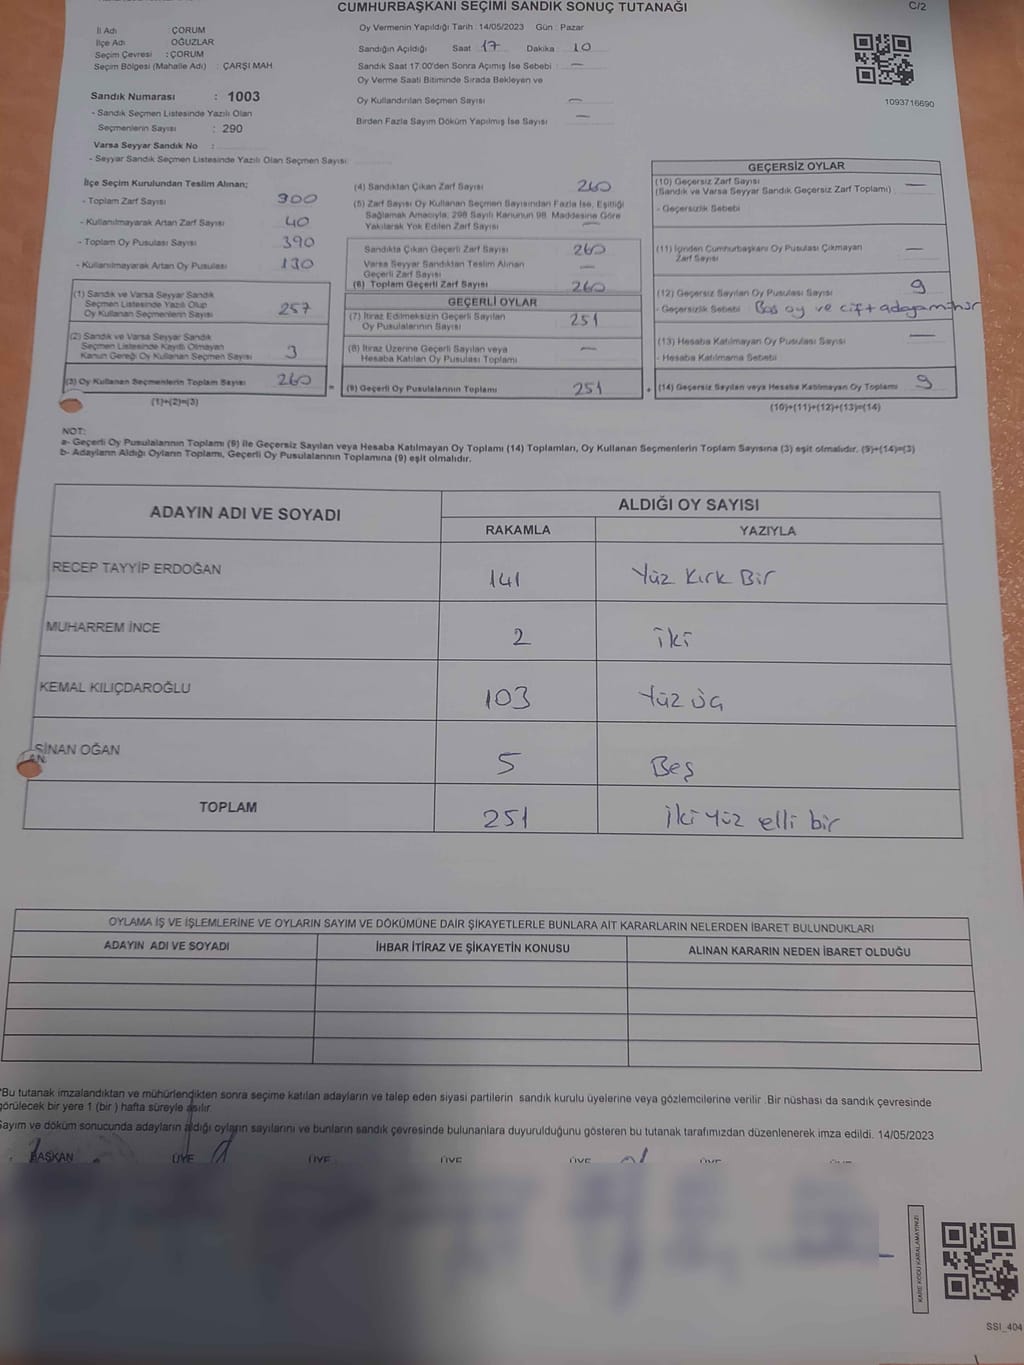 CUMHURBAŞKANI SEÇİMİ SANDIK SONUÇ TUTANAĞI
C/2
İl Adı : ÇORUM
İlçe Adı : OĞUZLAR
Seçim Çevresi : ÇORUM
Seçim Bölgesi (Mahalle Adı) : ÇARŞI MAH.
Sandık Numarası : 1003
- Sandık Seçmen Listesinde Yazılı Olan
Seçmenlerin Sayısı : 290
Varsa Seyyar Sandık No :
- Seyyar Sandık Seçmen Listesinde Yazılı Olan Seçmen Sayısı:
Oy Vermenin Yapıldığı Tarih : 14/05/2023 Gün : Pazar
Sandığın Açıldığı Saat 17 Dakika 10
Sandık Saat 17:00'den Sonra Açımış İse Sebebi : —
Oy Verme Saati Bitiminde Sırada Bekleyen ve
Oy Kullandırılan Seçmen Sayısı —
Birden Fazla Sayım Döküm Yapılmış İse Sayısı —
1093716690
İlçe Seçim Kurulundan Teslim Alınan;
- Toplam Zarf Sayısı 300
- Kullanılmayarak Artan Zarf Sayısı 40
- Toplam Oy Pusulası Sayısı 390
- Kullanılmayarak Artan Oy Pusulası 130
(1) Sandık ve Varsa Seyyar Sandık
Seçmen Listesinde Yazılı Olup
Oy Kullanan Seçmenlerin Sayısı 257
(2) Sandık ve Varsa Seyyar Sandık
Seçmen Listesinde Kayıtlı Olmayan
Kanun Gereği Oy Kullanan Seçmen Sayısı 3
(3) Oy Kullanan Seçmenlerin Toplam Sayısı 260
(1)+(2)=(3)
(4) Sandıktan Çıkan Zarf Sayısı 260
(5) Zarf Sayısı Oy Kullanan Seçmen Sayısından Fazla İse, Eşitliği
Sağlamak Amacıyla, 298 Sayılı Kanunun 98. Maddesine Göre
Yakılarak Yok Edilen Zarf Sayısı —
Sandıkta Çıkan Geçerli Zarf Sayısı 260
Varsa Seyyar Sandıktan Teslim Alınan
Geçerli Zarf Sayısı —
(6) Toplam Geçerli Zarf Sayısı 260
GEÇERLİ OYLAR
(7) İtiraz Edilmeksizin Geçerli Sayılan
Oy Pusulalarının Sayısı 251
(8) İtiraz Üzerine Geçerli Sayılan veya
Hesaba Katılan Oy Pusulası Toplamı —
= (9) Geçerli Oy Pusulalarının Toplamı 251
GEÇERSİZ OYLAR
(10) Geçersiz Zarf Sayısı —
(Sandık ve Varsa Seyyar Sandık Geçersiz Zarf Toplamı)
- Geçersizlik Sebebi
(11) İçinden Cumhurbaşkanı Oy Pusulası Çıkmayan
Zarf Sayısı —
(12) Geçersiz Sayılan Oy Pusulası Sayısı 9
- Geçersizlik Sebebi Boş oy ve çift adaya mühür
(13) Hesaba Katılmayan Oy Pusulası Sayısı —
- Hesaba Katılmama Sebebi
+ (14) Geçersiz Sayılan veya Hesaba Katılmayan Oy Toplamı 9
(10)+(11)+(12)+(13)=(14)
NOT:
a- Geçerli Oy Pusulalarının Toplamı (9) ile Geçersiz Sayılan veya Hesaba Katılmayan Oy Toplamı (14) Toplamları, Oy Kullanan Seçmenlerin Toplam Sayısına (3) eşit olmalıdır. (9)+(14)=(3)
b- Adayların Aldığı Oyların Toplamı, Geçerli Oy Pusulalarının Toplamına (9) eşit olmalıdır.
ADAYIN ADI VE SOYADI
ALDIĞI OY SAYISI
RAKAMLA YAZIYLA
RECEP TAYYİP ERDOĞAN 141 Yüz Kırk Bir
MUHARREM İNCE 2 İki
KEMAL KILIÇDAROĞLU 103 Yüz üç
SİNAN OĞAN 5 Beş
TOPLAM 251 İki Yüz elli bir
OYLAMA İŞ VE İŞLEMLERİNE VE OYLARIN SAYIM VE DÖKÜMÜNE DAİR ŞİKAYETLERLE BUNLARA AİT KARARLARIN NELERDEN İBARET BULUNDUKLARI
ADAYIN ADI VE SOYADI İHBAR İTİRAZ VE ŞİKAYETİN KONUSU ALINAN KARARIN NEDEN İBARET OLDUĞU
*Bu tutanak imzalandıktan ve mühürlendikten sonra seçime katılan adayların ve talep eden siyasi partilerin sandık kurulu üyelerine veya gözlemcilerine verilir. Bir nüshası da sandık çevresinde
görülecek bir yere 1 (bir ) hafta süreyle asılır.
Sayım ve döküm sonucunda adayların aldığı oyların sayılarını ve bunların sandık çevresinde bulunanlara duyurulduğunu gösteren bu tutanak tarafımızdan düzenlenerek imza edildi. 14/05/2023
BAŞKAN ÜYE ÜYE ÜYE ÜYE ÜYE
KARE KODU KARALAMAYINIZ!
SSI_404